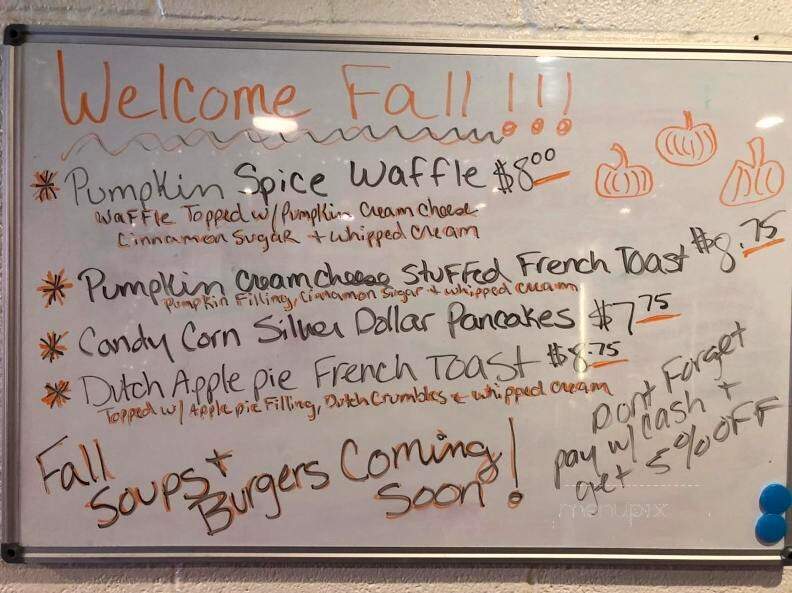 Welcome Fall!!!
* Pumpkin Spice Waffle $8.00
Waffle Topped w/Pumpkin Cream Cheese
Cinnamon Sugar + Whipped Cream
* Pumpkin Cream Cheese Stuffed French Toast $8.75
Pumpkin Filling, Cinnamon Sugar + whipped cream
* Candy Corn Silver Dollar Pancakes $7.75
* Dutch Apple pie French Toast $8.75
Topped w/ Apple pie Filling, Dutch Crumbles + whipped cream
Dont Forget
pay w/ cash +
get 5% OFF
Fall
Soups +
Burgers Coming
Soon!
menupix